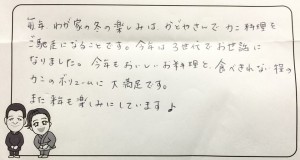 毎年 わが家の冬の楽しみは かどやさんで カニ料理を
ご馳走になることです。今年は3世代でお世話に
なりました。今年もおいしいお料理と、食べきれない程の
カニのボリュームに 大満足です。
また来年を楽しみにしています♪